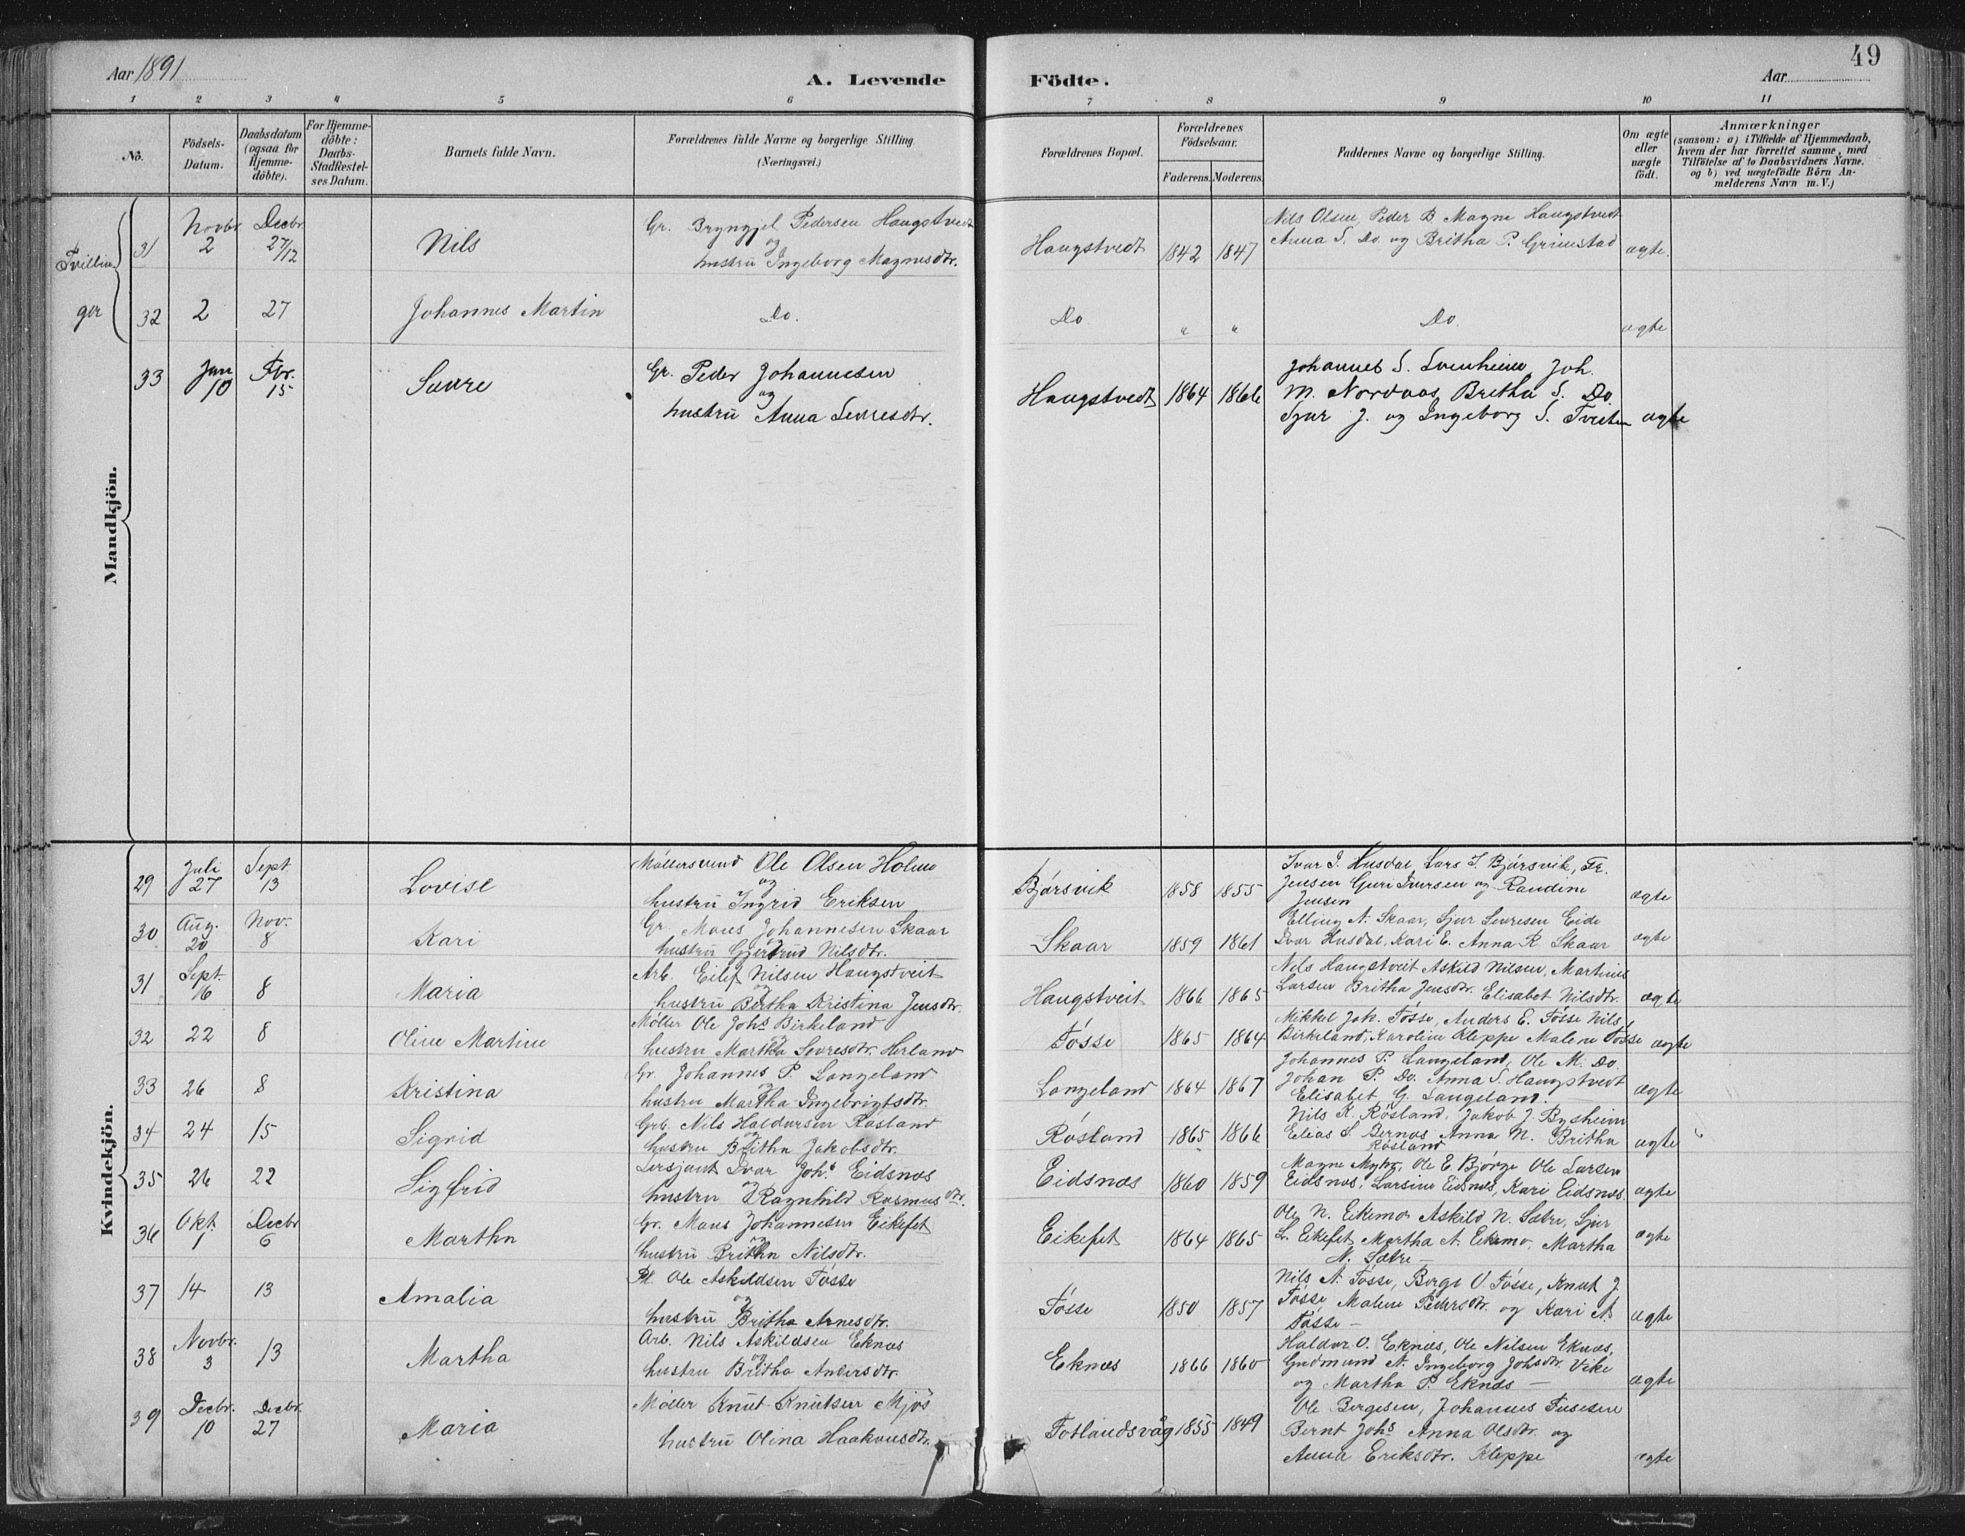 Aar 1891
A. Levende
Födte.
Aar
49
1 2 3 4 5 6 7 8 9 10 11
No.
Födsels-
Datum.
Daabsdatum
(ogsaa for
Hjemme-
döbte).
For Hjemme-
döbte:
Daabs-
Stadfæstel-
ses Datum.
Barnets fulde Navn.
Forældrenes fulde Navne og borgerlige Stilling.
(Næringsvei.)
Forældrenes Bopæl.
Forældrenes
Födselsaar.
Faderens. Moderens.
Faddernes Navne og borgerlige Stilling.
Om ægte
eller
uægte
födt.
Anmærkninger
(saasom: a) i Tilfælde af Hjemmedaab,
hvem der har forrettet samme, med
Tilföielse af to Daabsvidners Navne,
og b) ved uægtefödte Börn An-
melderens Navn m. V.)
Mandkjön.
Tvillin
ger
31 Novbr 2 Decbr 27/12 Nils
Gr. Bryngjel Pedersen Haugstvedt
og
hustru Ingeborg Magnesdtr.
Haugstvedt 1842 1847
Nils Olsen, Peder B Magne Haugstvedt
Anna S. Do og Britha P. Grimstad
ægte.
32 2 27 Johannes Martin Do. Do " " Do. ægte
33 Jun 10 15
Gr. Peder Johannesen
og
hustru Anna Sevresdtr.
Haugstvedt 1864 1866
Johannes S. Svenheim Joh.
M. Nordaas Britha S. Do.
Sjur J. og Ingeborg S. Tveiten ægte
Kvindekjön.
29 Juli 27 Sept 13 Lovise
Möllersvend Ole Olsen Holme
og
hustru Ingrid Eriksen
Bjørsvik 1858 1855
Ivar I. Husdal, Lars I. Bjørsvik, Fr.
Jensen Guri Iversen og Randine
Jensen
ægte
30 Aug. 20 Nov. 8 Kari
Gr. Mons Johannesen Skaar
hustru Gjertrud Nilsdtr.
Skaar 1859 1861
Elling N. Skaar, Sjur Sevresen Eide
Ivar Husdal, Kari E. Anna R. Skaar
ægte
31 Sept. 16 8 Maria
Arb. Eilef Nilsen Haugstveit
og
hustru Britha Kristina Jensdtr.
Haugstveit 1866 1865
Nels Haugstveit Askild Nilsen, Martinus
Larsen Britha Jensdtr. Elisabet Nilsdtr.
ægte
32 22 8 Oline Martine
Möller Ole Johs Birkeland
og
hustru Martha Sevresdtr. Herland
Fósse 1865 1864
Mikkel Joh. Fósse, Anders E. Fósse Nils
Birkeland, Karoline Kleppe Malene Fósse
ægte
33 26 8 Kristina
Gr. Johannes P. Langeland
og
hustru Martha Ingebrigtsdtr.
Langeland 1864 1867
Johannes P. Langeland, Ole M. Do
Johan P. Do. Anna S. Haugstvedt
Elisabet G. Langeland.
ægte
34 24 15 Sigrid
Nils Haldorsen Røsland
og
hustru Britha Jakobsdtr.
Rósland 1865 1866
Nils K. Rósland, Jakob J. Bysheim
Elias S. Bernes Anna N. Britha
Rósland
ægte
35 26 22 Sigfrid
Sersjant Ivar Johs Eidsnes
og
hustru Ragnhild Rasmusdtr.
Eidsnæs 1860 1859
Magne Myhr, Ole E. Bjørge Ole Larsen
Eidsnes, Larsine Eidsnæs, Kari Eidsnæs
ægte
36 Okt. 1 Decbr 6 Martha
Gr. Mons Johannesen Eikefet
og
hustru Britha Nilsdtr.
Eikefet 1864 1865
Ole N. Eikemo Askild N. Sætre, Sjur
L. Eikefet, Martha A. Eikemo, Martha
N. Sætre
ægte
37 14 13 Amalia
Ole Askildsen Fósse
og
hustru Britha Arnesdtr.
Fósse 1850 1857
Nils A. Fósse, Berge O Fósse, Knut J
Fósse Malene Pedersdtr. og Kari A
Fósse —
ægte
38 Novbr. 3 13 Martha
Arb. Nils Askildsen Eknæs
og
hustru Britha Andersdtr.
Eknæs 1866 1860
Haldor O. Eknæs, Ole Nilsen Eknæs,
Gudmund A. Ingeborg Johsdtr. Vike
og Martha P. Eknæs —
ægte
39 Decbr. 10 Decbr. 27 Maria
Möller Knut Knutsen Mjös
hustru Olina Haakonsdtr.
Fotlandsvåg 1855 1849
Ole Bergesen, Johannes
Bernt Johs Anna Olsdtr. og
Anna Eriksdtr. Kleppe
ægte